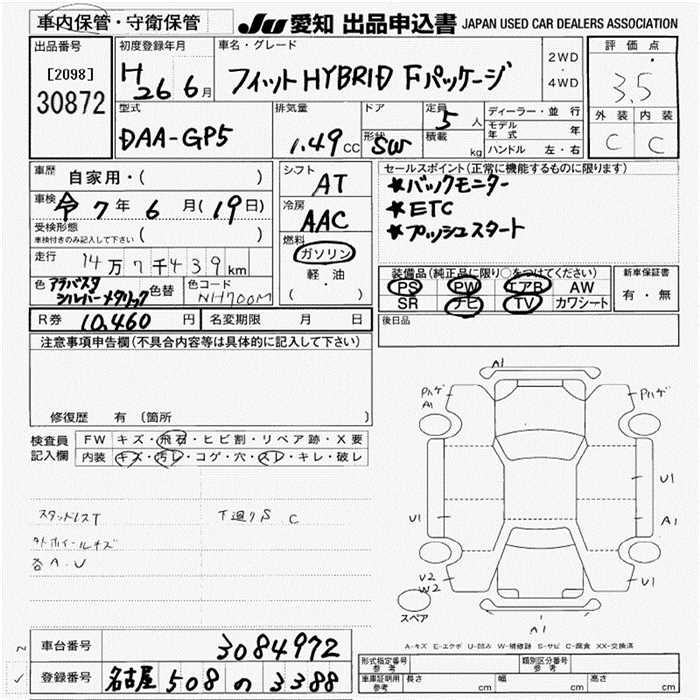 車内保管・守衛保管
JU 愛知 出品申込書 JAPAN USED CAR DEALERS ASSOCIATION
出品番号
[2098]
30872
初度登録年月
H 26 6月
車名・グレード
フィットHYBRID Fパッケージ
2WD
・
4WD
評価点
3.5
外装 内装
C C
型式
DAA-GP5
排気量
1.49 CC
ドア
形状 SW
定員 5 人
積載 kg
ディーラー・並行
モデル年式 年
ハンドル 左・右
車歴 自家用・( )
車検 令 7年 6月(19日)
受検形態
車検付きのみ記入して下さい ( )
走行 14万7千439km
色 アラバスタシルバーメタリック
色替
色コード NH700M
シフト AT
冷房 AAC
燃料
ガソリン
軽・油
( )
セールスポイント(正常に機能するものに限ります)
★バックモニター
★ETC
★プッシュスタート
装備品(純正品に限り○をつけてください)
PS PW エアB AW
SR ナビ TV カワシート
新車保証書
有・無
後日品
R券 10,460円 名変期限 月 日
注意事項申告欄(不具合内容等は具体的に記入して下さい)
修復歴 有(箇所 )
検査員記入欄
FW キズ・飛石・ヒビ割・リペア跡・X要
内装 キズ・汚レ・コゲ・穴・スレ・キレ・破レ
スタッドレスT 下廻りS C
タホイールキズ
各A・U
A1
Pハゲ
A1
Pハゲ
U1
U1
A1
U2
W2
U1
A1
スペア
A-キズ E-エクボ U-凹み W-補修跡 S-サビ C-腐食 XX-交換済
車台番号 3084972
登録番号 名古屋 508 の 3388
形式指定番号
参考
類別区分番号
参考
車庫証明用
参考
長さ cm 幅 cm 高さ cm